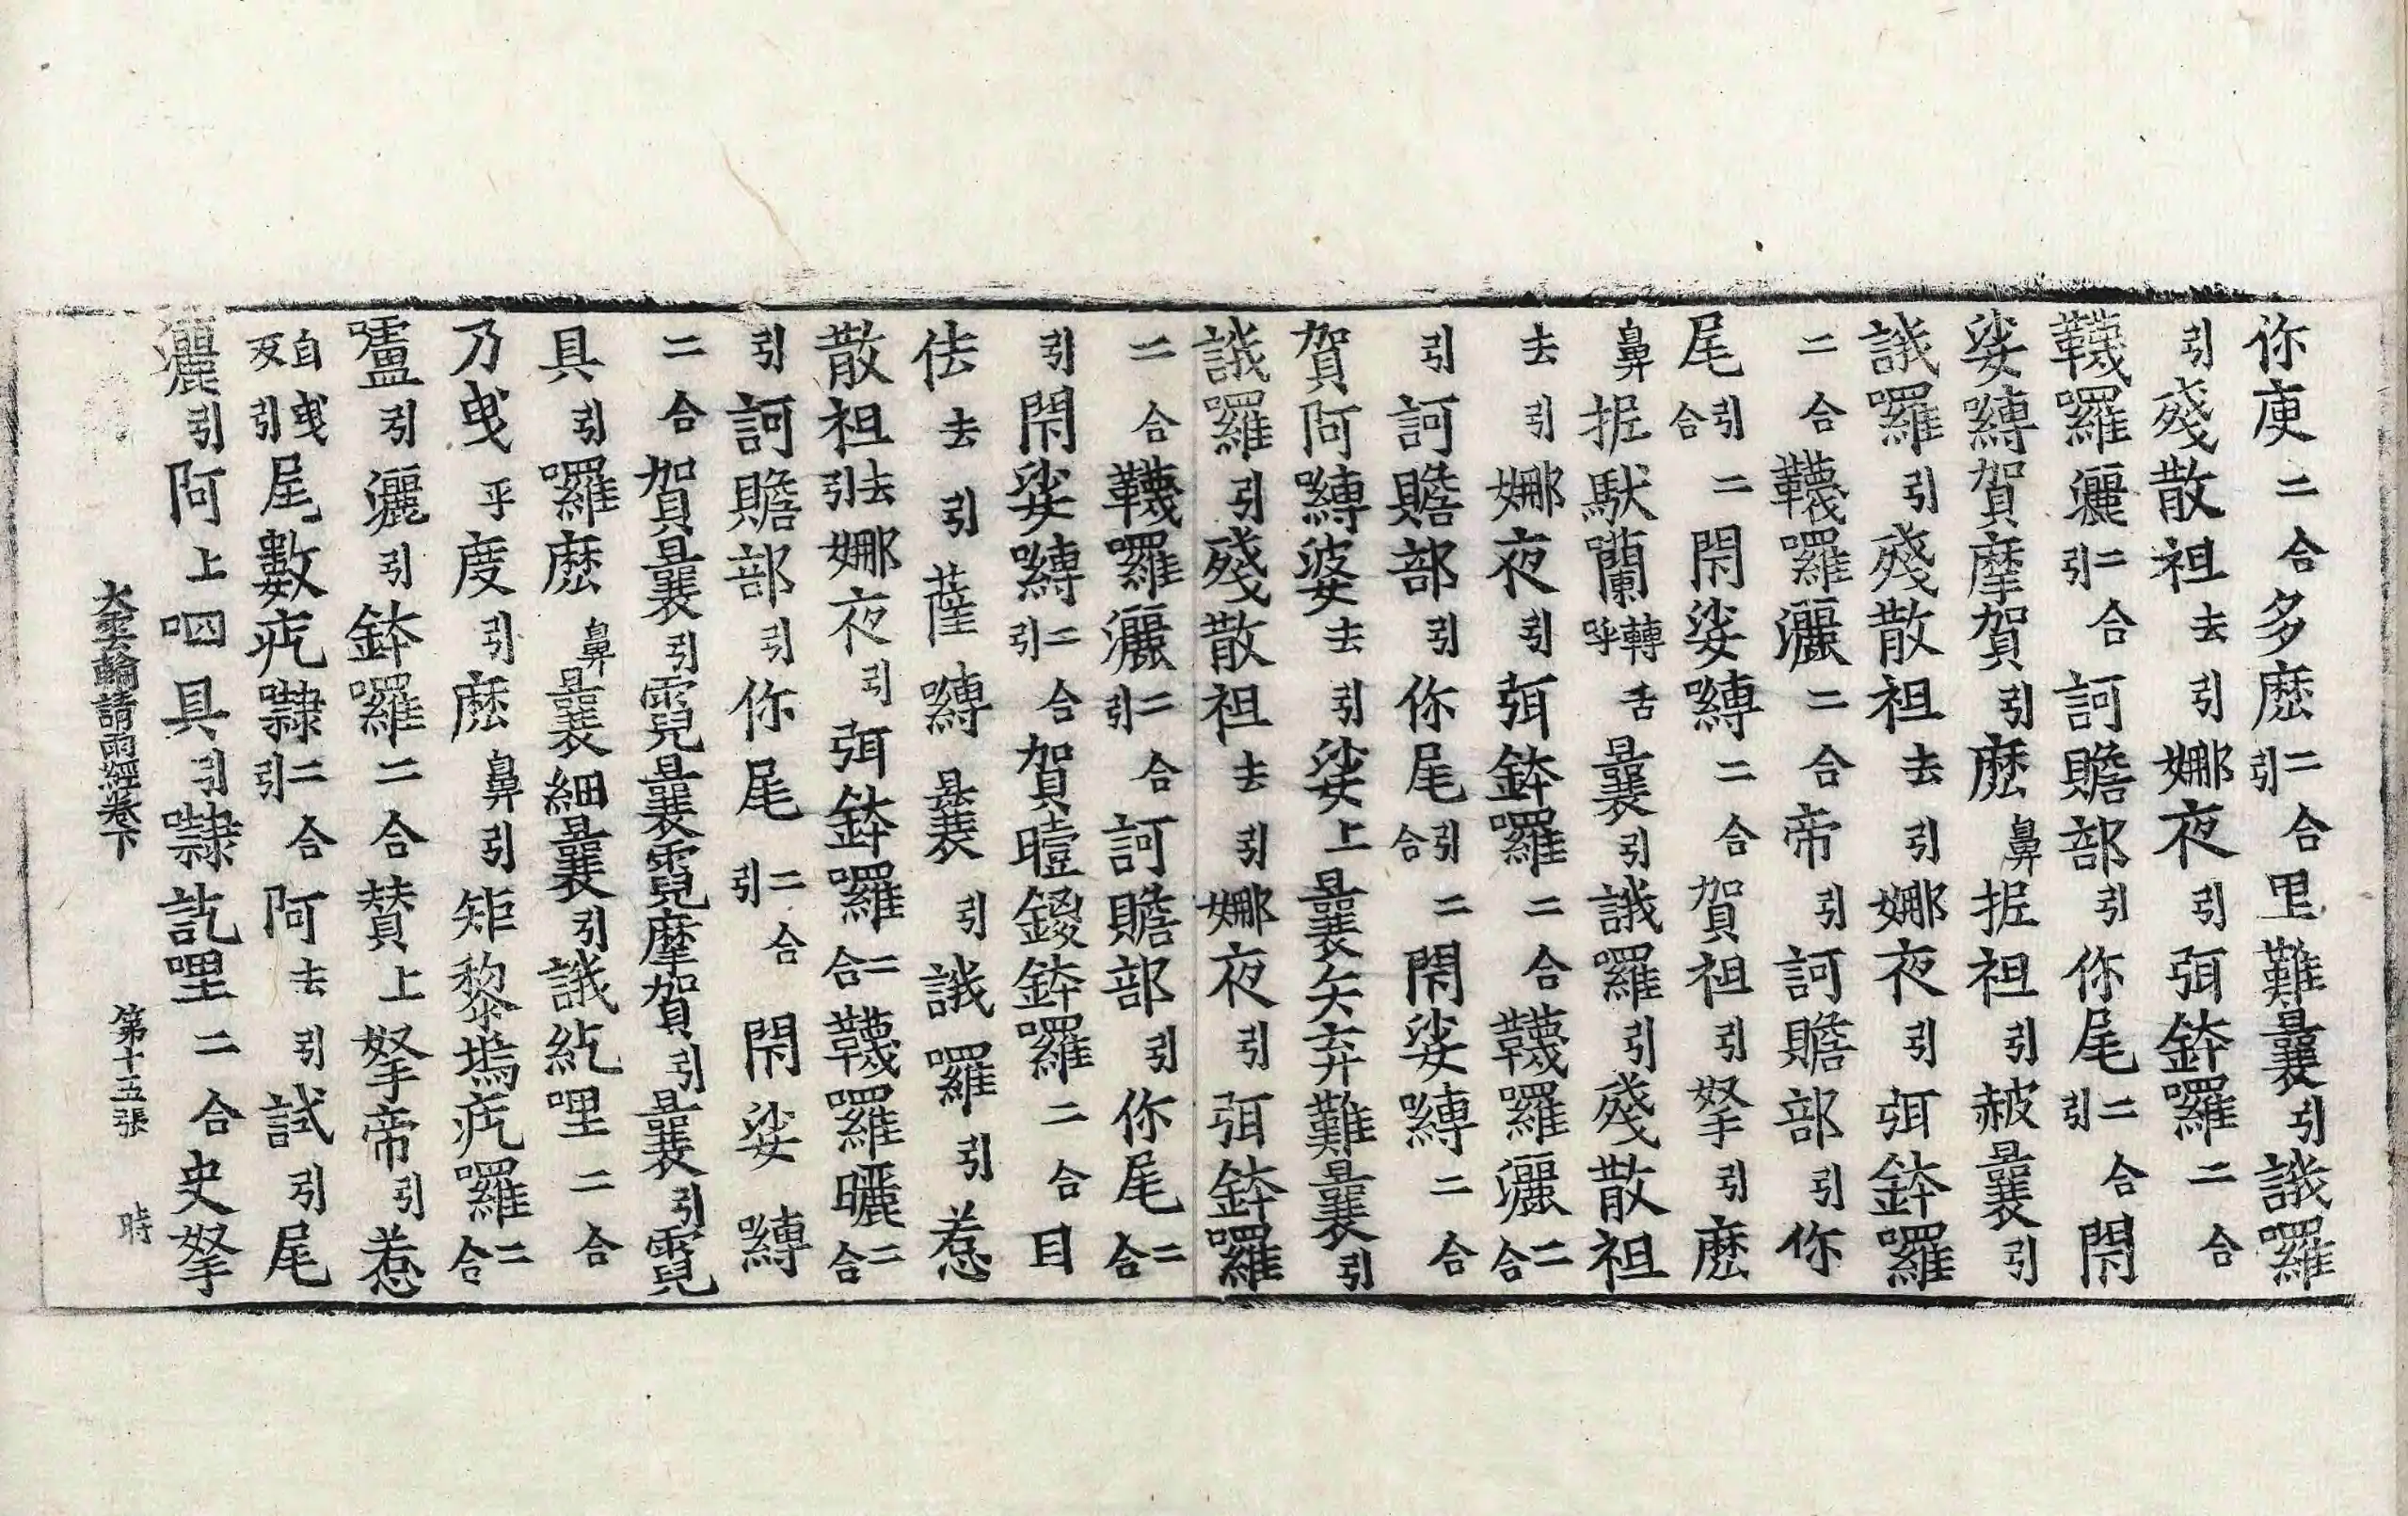 你庾二合多麽二合引里難曩引誐羅
引殘散祖去引娜夜引弭鉢囉二合
韈囉灑二合引訶贍部引你尾二合引閇
娑嚩賀摩賀引麽鼻抳祖引赧曩引
誐囉引殘散祖去引娜夜引弭鉢囉
二合韈囉灑二合帝引訶贍部引你
尾引合二閇娑嚩二合賀祖引拏引麽
鼻抳馱蘭轉舌呼曩引誐囉引殘散祖
去引娜夜引弭鉢囉二合韈囉灑二合
引訶贍部引你尾引合二閇娑嚩二合
賀阿嚩婆去引娑上曩矢弃難曩引
誐囉引殘散祖去引娜夜引弭鉢囉
二合韈囉灑二合引訶贍部引你尾二合
引閇娑嚩二合引賀曀鑁鉢囉二合目
佉去引薩嚩曩引誐囉引惹
散祖去引娜夜引弭鉢囉二合韈囉曬二合
引訶贍部引你尾二合引閇娑嚩
二合賀曩引霓曩霓摩賀引曩引霓
具引囉麽鼻曩細曩引誐紇哩二合
乃曳乎度引麽鼻引矩黎塢疙囉二合
嚧引灑引鉢囉二合賛上拏帝引惹
自曳反引尾數疙㘑二合引阿去引試引尾
灑引阿上呬具引㘑訖哩二合史拏
大雲輪請雨經卷下 第十五張 時